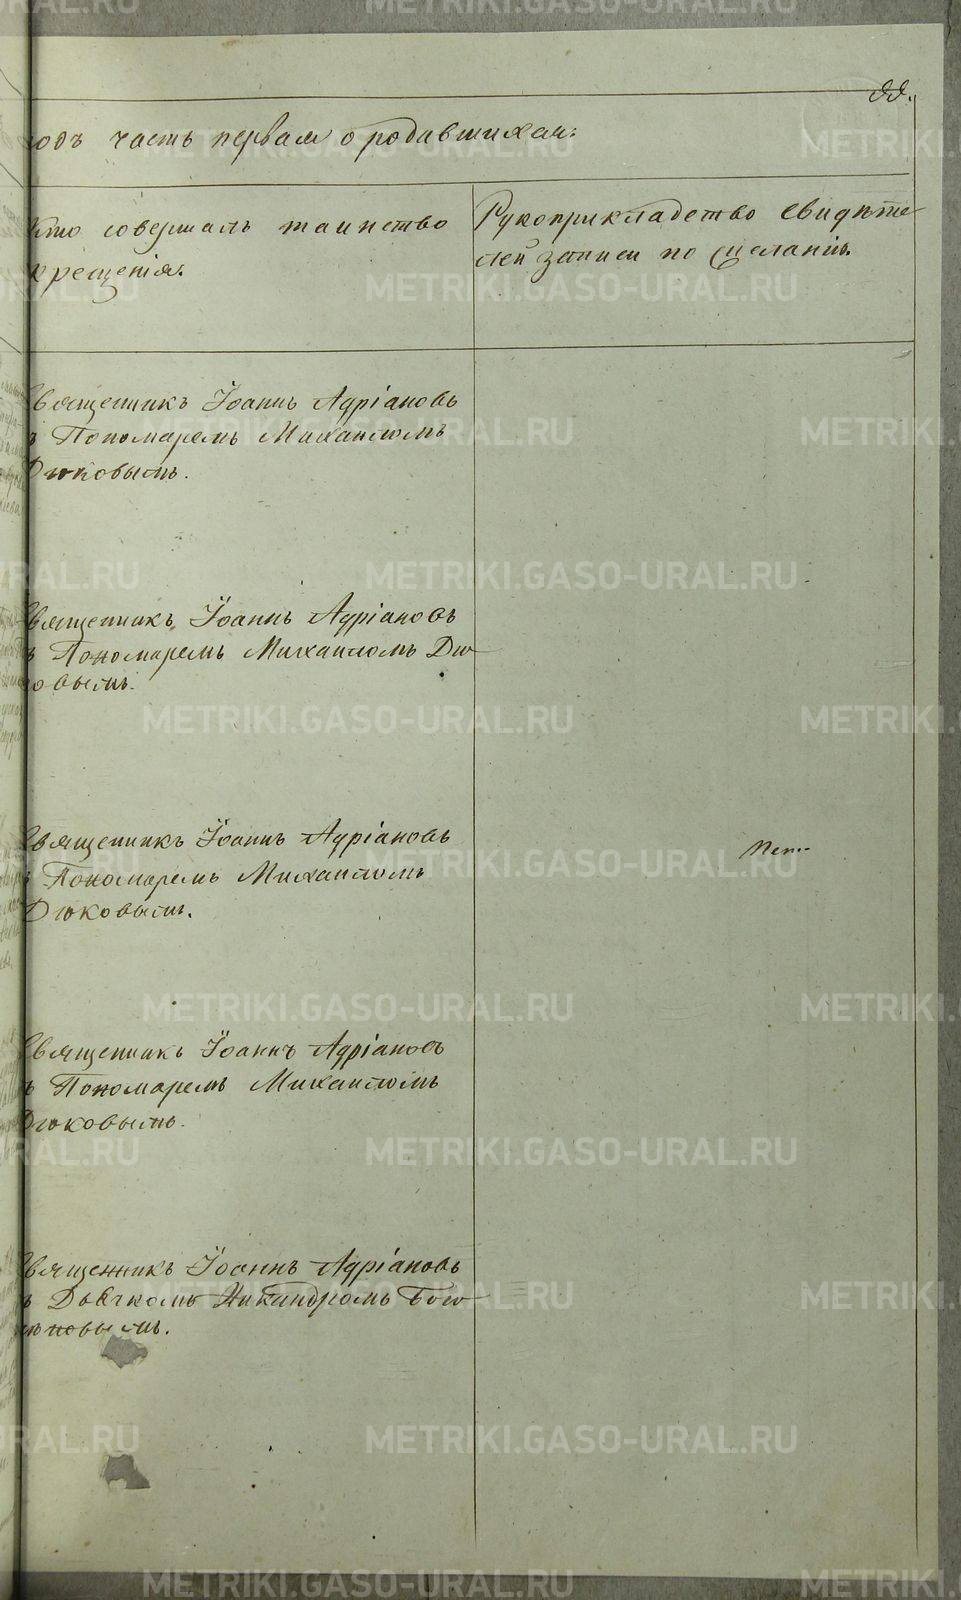 88.
годъ часть первая о родившихся:
Кто совершалъ таинство
крещенія:
Рукоприкладство свидѣте
лей записи по желанію.
Священникъ Іоаннъ Адріановъ
съ Пономаремъ Михаиломъ
Дюковымъ.
Священникъ Іоаннъ Адріановъ
съ Пономаремъ Михаиломъ Дю
ковымъ.
Священникъ Іоаннъ Адріановъ
съ Пономаремъ Михаиломъ
Дюковымъ.
Священникъ Іоаннъ Адріановъ
съ Пономаремъ Михаиломъ
Дюковымъ.
Священникъ Іоаннъ Адріановъ
съ Дьячкомъ Никандромъ Бого
METRIKI.GASO-URAL.RU